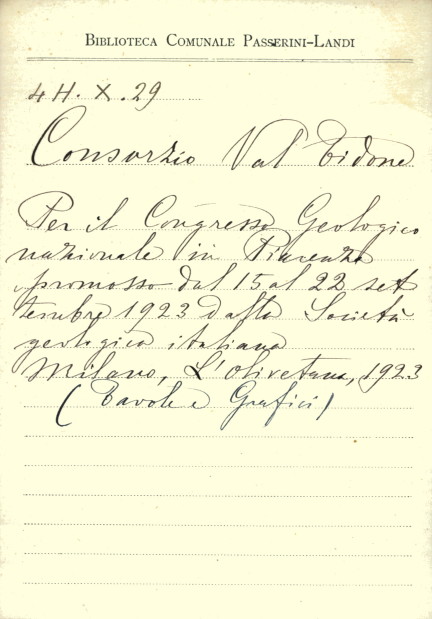 BIBLIOTECA COMUNALE PASSERINI-LANDI
4 H. X. 29
Consorzio Val Tidone
Per il Congresso Geologico
nazionale in Piacenza
promosso dal 15 al 22 set
tembre 1923 dalla Società
geologica italiana
Milano, L'Olivetana, 1923
(Tavole e Grafici)